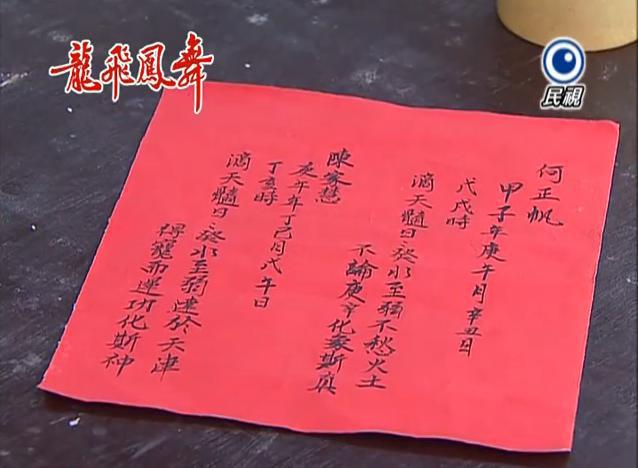 龍飛鳳舞
民視
何正帆
甲子年庚午月辛丑日
戊戌時
滴天髓曰:癸水至弱不愁火土
不論庚辛化象斯真
陳家慧
庚午年丁巳月戊午日
丁亥時
滴天髓曰:癸水至弱達於天津
得籠而運功化斯神